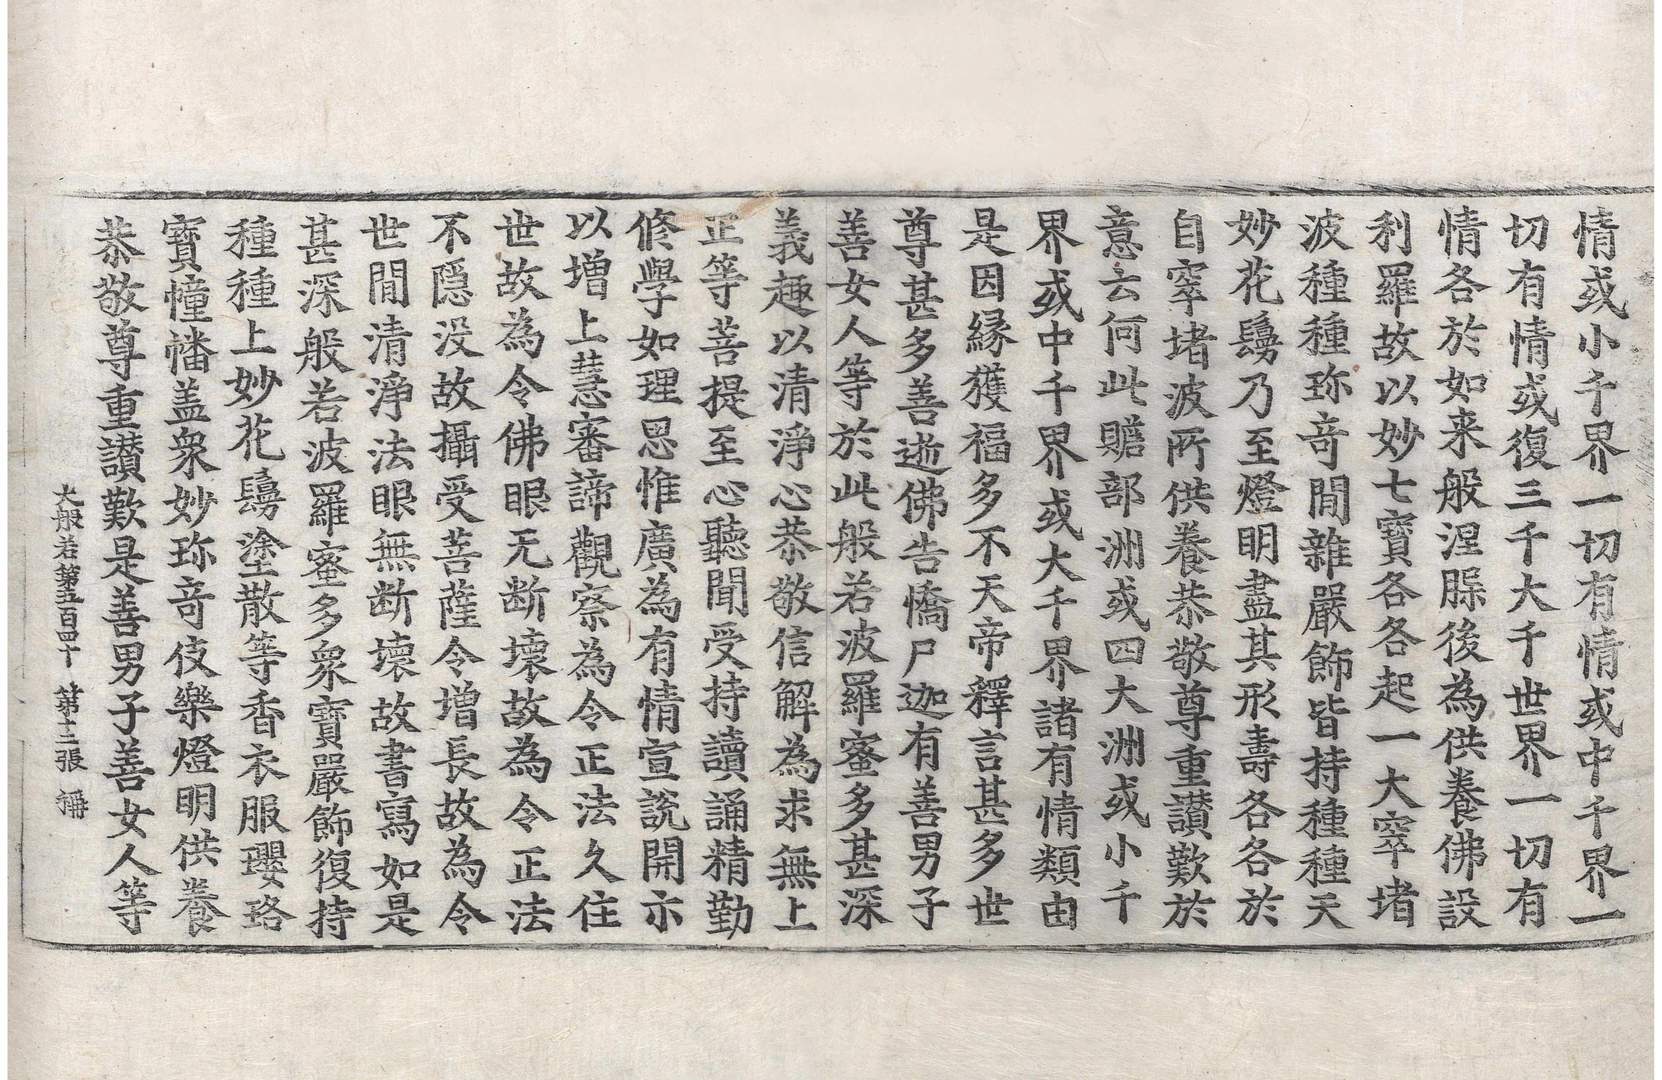 情或小千界一切有情或中千界一
切有情或復三千大千世界一切有
情各於如来般涅脲後為供養佛設
利羅故以妙七寶各各起一大窣堵
波種種珎竒閒雜嚴飾皆持種種天
妙花鬘乃至燈明盡其形壽各各於
自窣堵波所供養恭敬尊重讃歎於
意云何此贍部洲或四大洲或小千
界或中千界或大千界諸有情類由
是因緣獲福多不天帝釋言甚多世
尊甚多善逝佛告憍尸迦有善男子
善女人等於此般若波羅蜜多甚深
義趣以清淨心恭敬信解為求無上
正等菩提至心聽聞受持讀誦精勤
修學如理思惟廣為有情宣說開示
以增上慧審諦觀察為令正法久住
世故為令佛眼无断壞故為令正法
不隱没故攝受菩薩令增長故為令
世閒清淨法眼無断壞故書寫如是
甚深般若波羅蜜多衆寶嚴飾復持
種種上妙花鬘塗散等香衣服瓔珞
寶幢幡盖衆妙珎竒伎樂燈明供養
恭敬尊重讃歎是善男子善女人等
大般若第五百四十 第十二張 稱